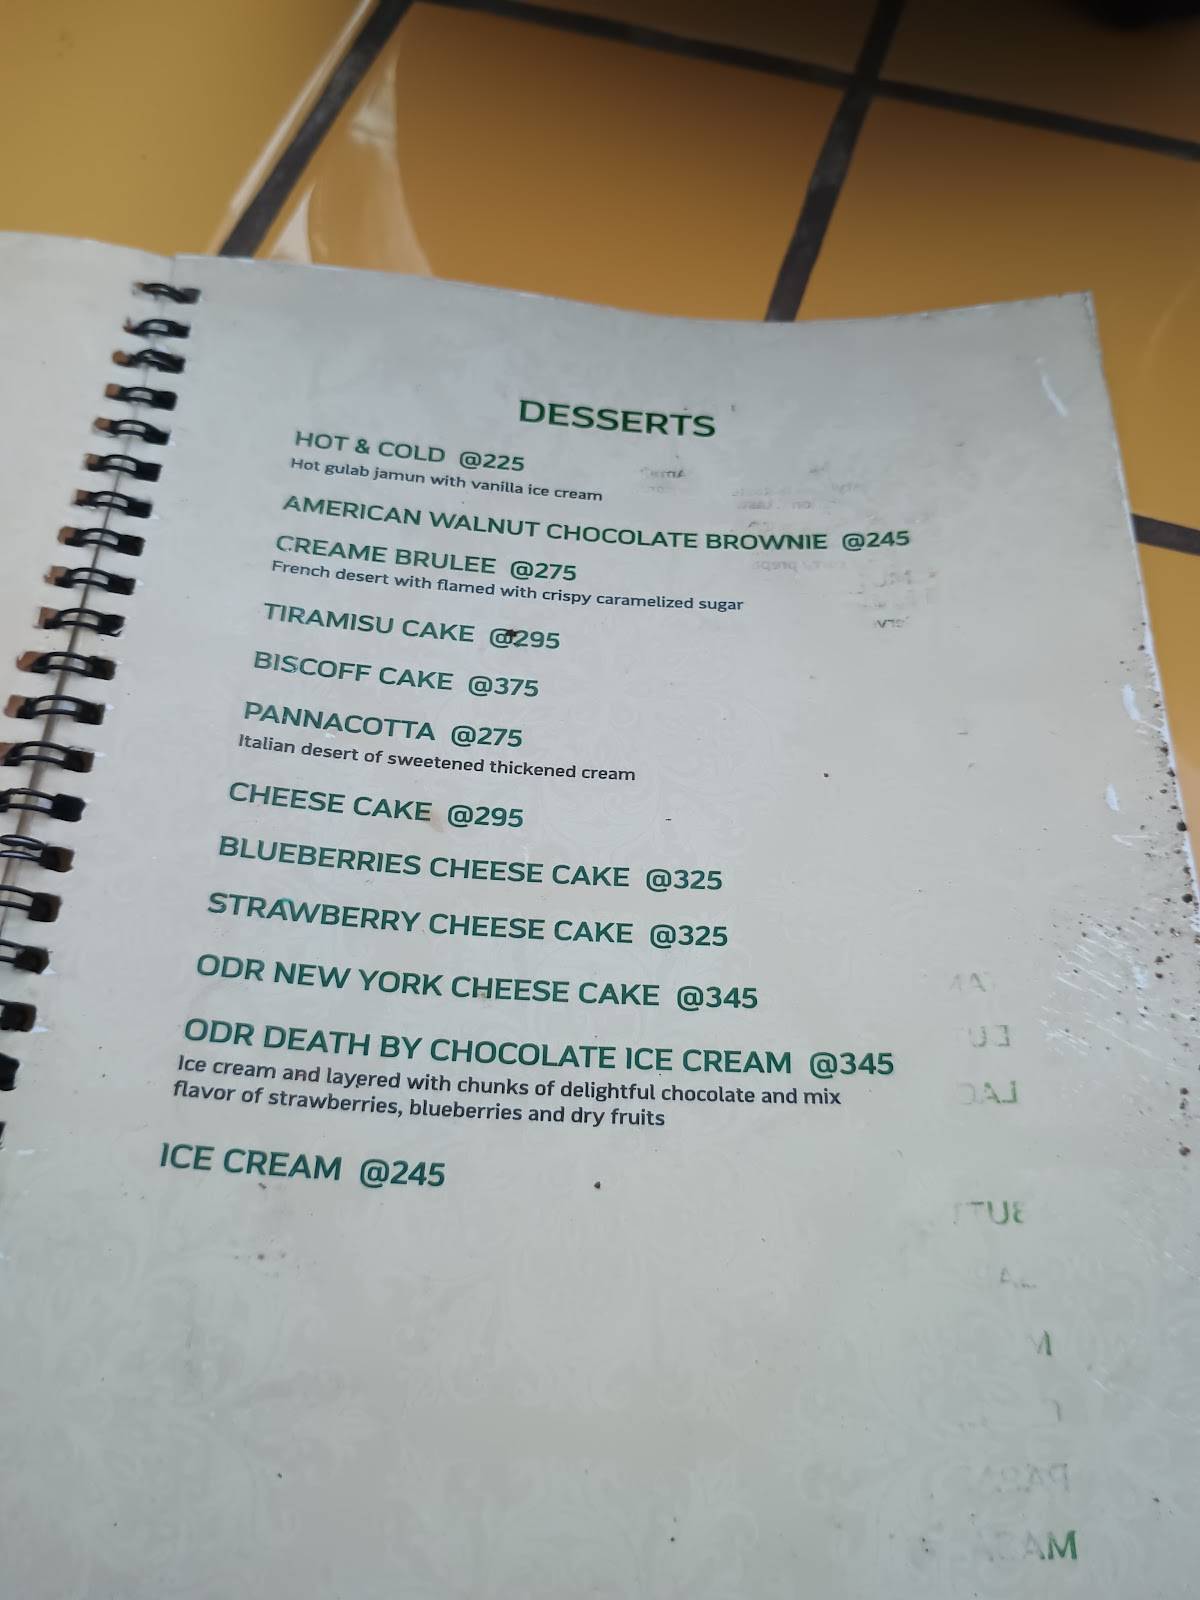 DESSERTS
HOT & COLD @225
Hot gulab jamun with vanilla ice cream
AMERICAN WALNUT CHOCOLATE BROWNIE @245
CREAME BRULEE @275
French desert with flamed with crispy caramelized sugar
TIRAMISU CAKE @295
BISCOFF CAKE @375
PANNACOTTA @275
Italian desert of sweetened thickened cream
CHEESE CAKE @295
BLUEBERRIES CHEESE CAKE @325
STRAWBERRY CHEESE CAKE @325
ODR NEW YORK CHEESE CAKE @345
ODR DEATH BY CHOCOLATE ICE CREAM @345
Ice cream and layered with chunks of delightful chocolate and mix
flavor of strawberries, blueberries and dry fruits
ICE CREAM @245